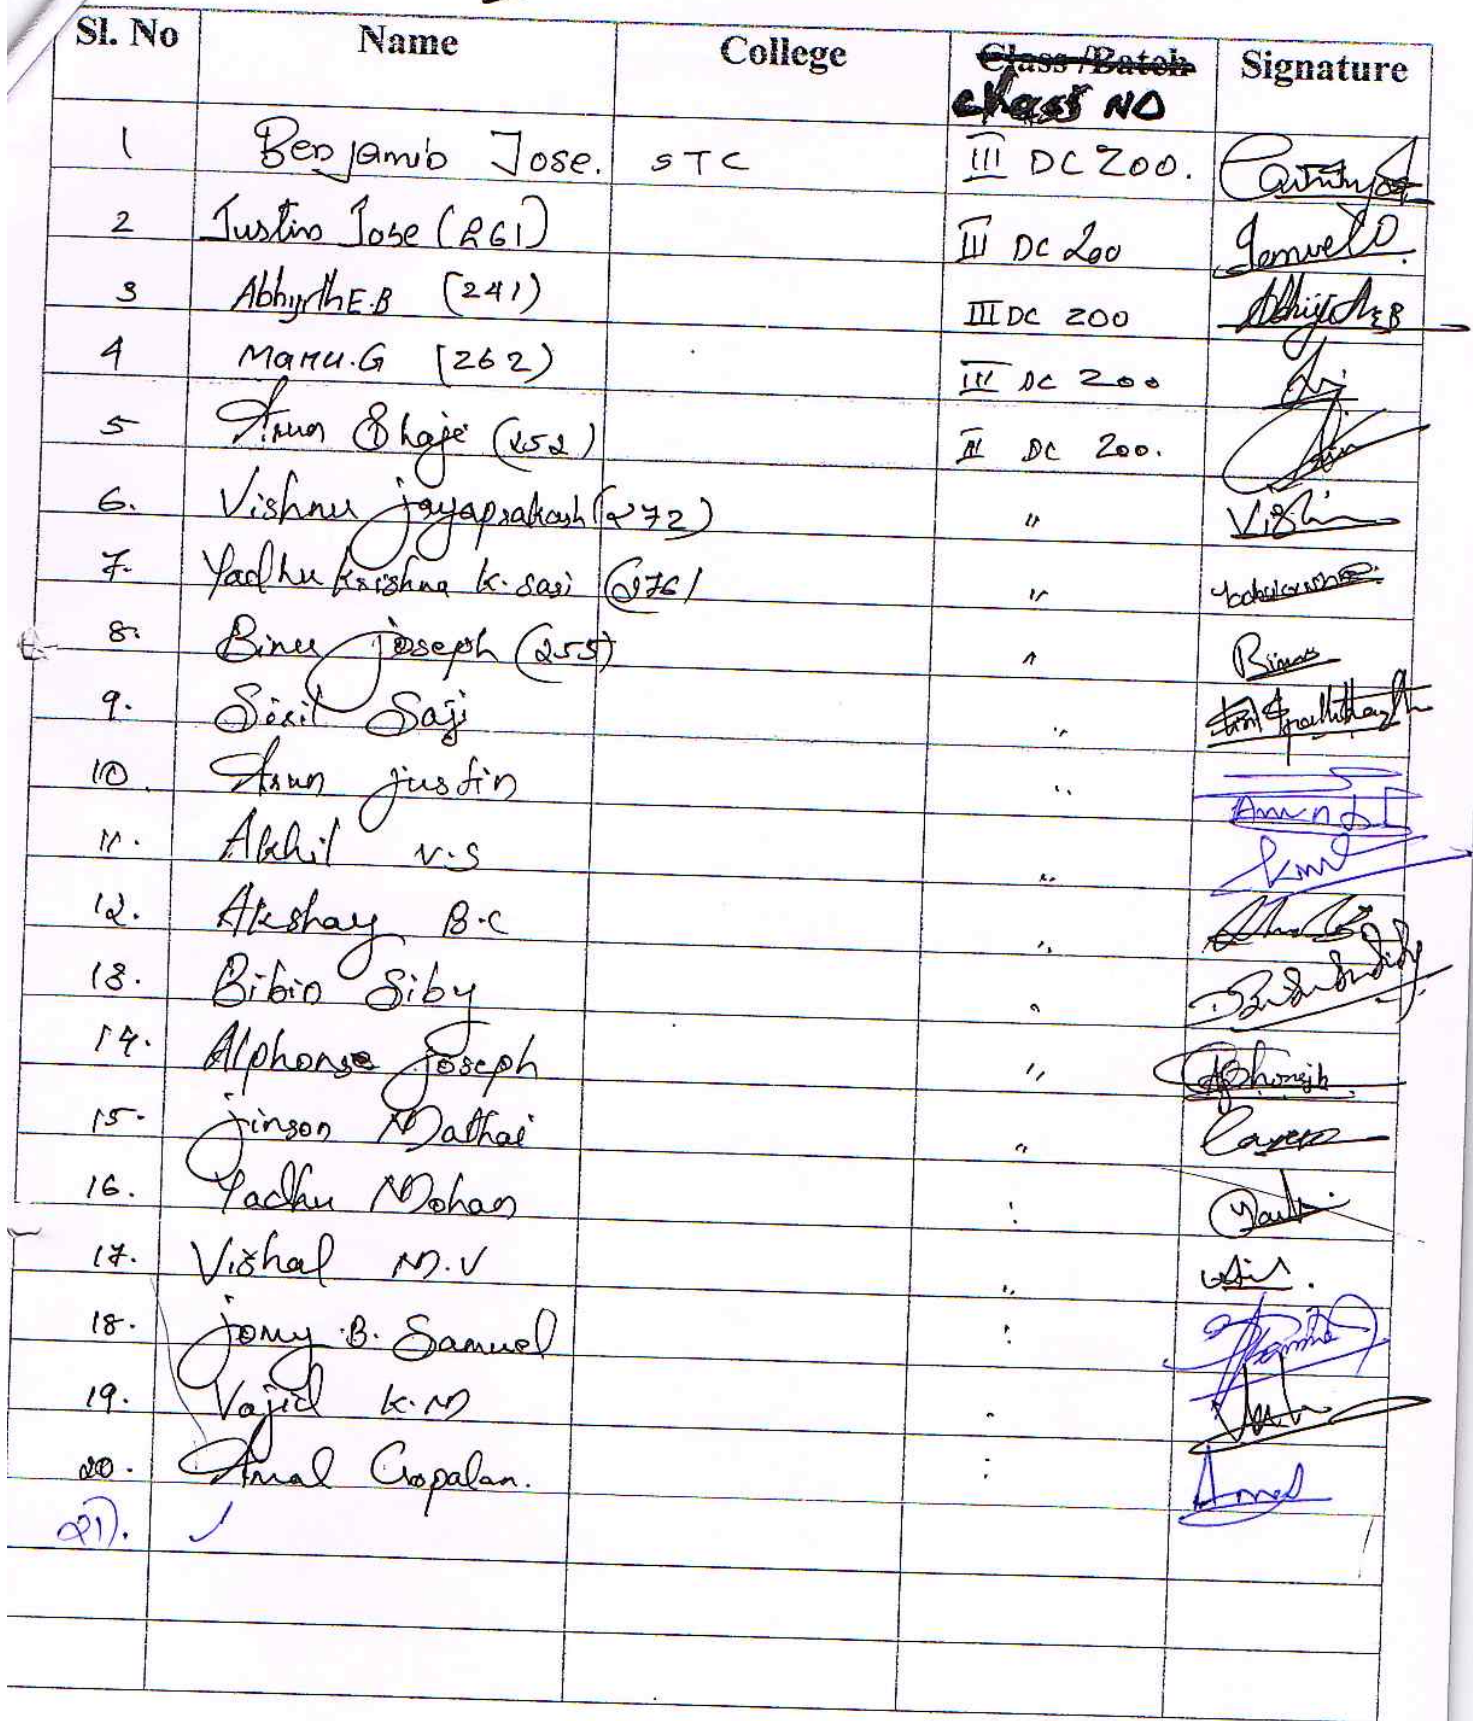 Sl. No Name College Class /Batch Signature
Class NO
1 Benjamin Jose. STC III DC Zoo.
2 Justin Jose (261) III DC Zoo
3 Abhijith E.B (241) III DC ZOO Abhijith E B
4 Manu.G (262) III DC Zoo
5 Arun Shaji (252) III DC Zoo.
6. Vishnu jayaprakash (272) "
7. Yadhu krishna k. sasi (276) "
8. Binu joseph (255) " Binu
9. Siril Saji "
10. Arun justin "
11. Akhil V.S "
12. Akshay B.C "
13. Bibin Siby "
14. Alphonse joseph "
15. jinson Mathai "
16. Yadhu Mohan "
17. Vishal M.V "
18. jomy .B. Samuel "
19. Vajid K.M "
20. Amal Gopalan. "
21).